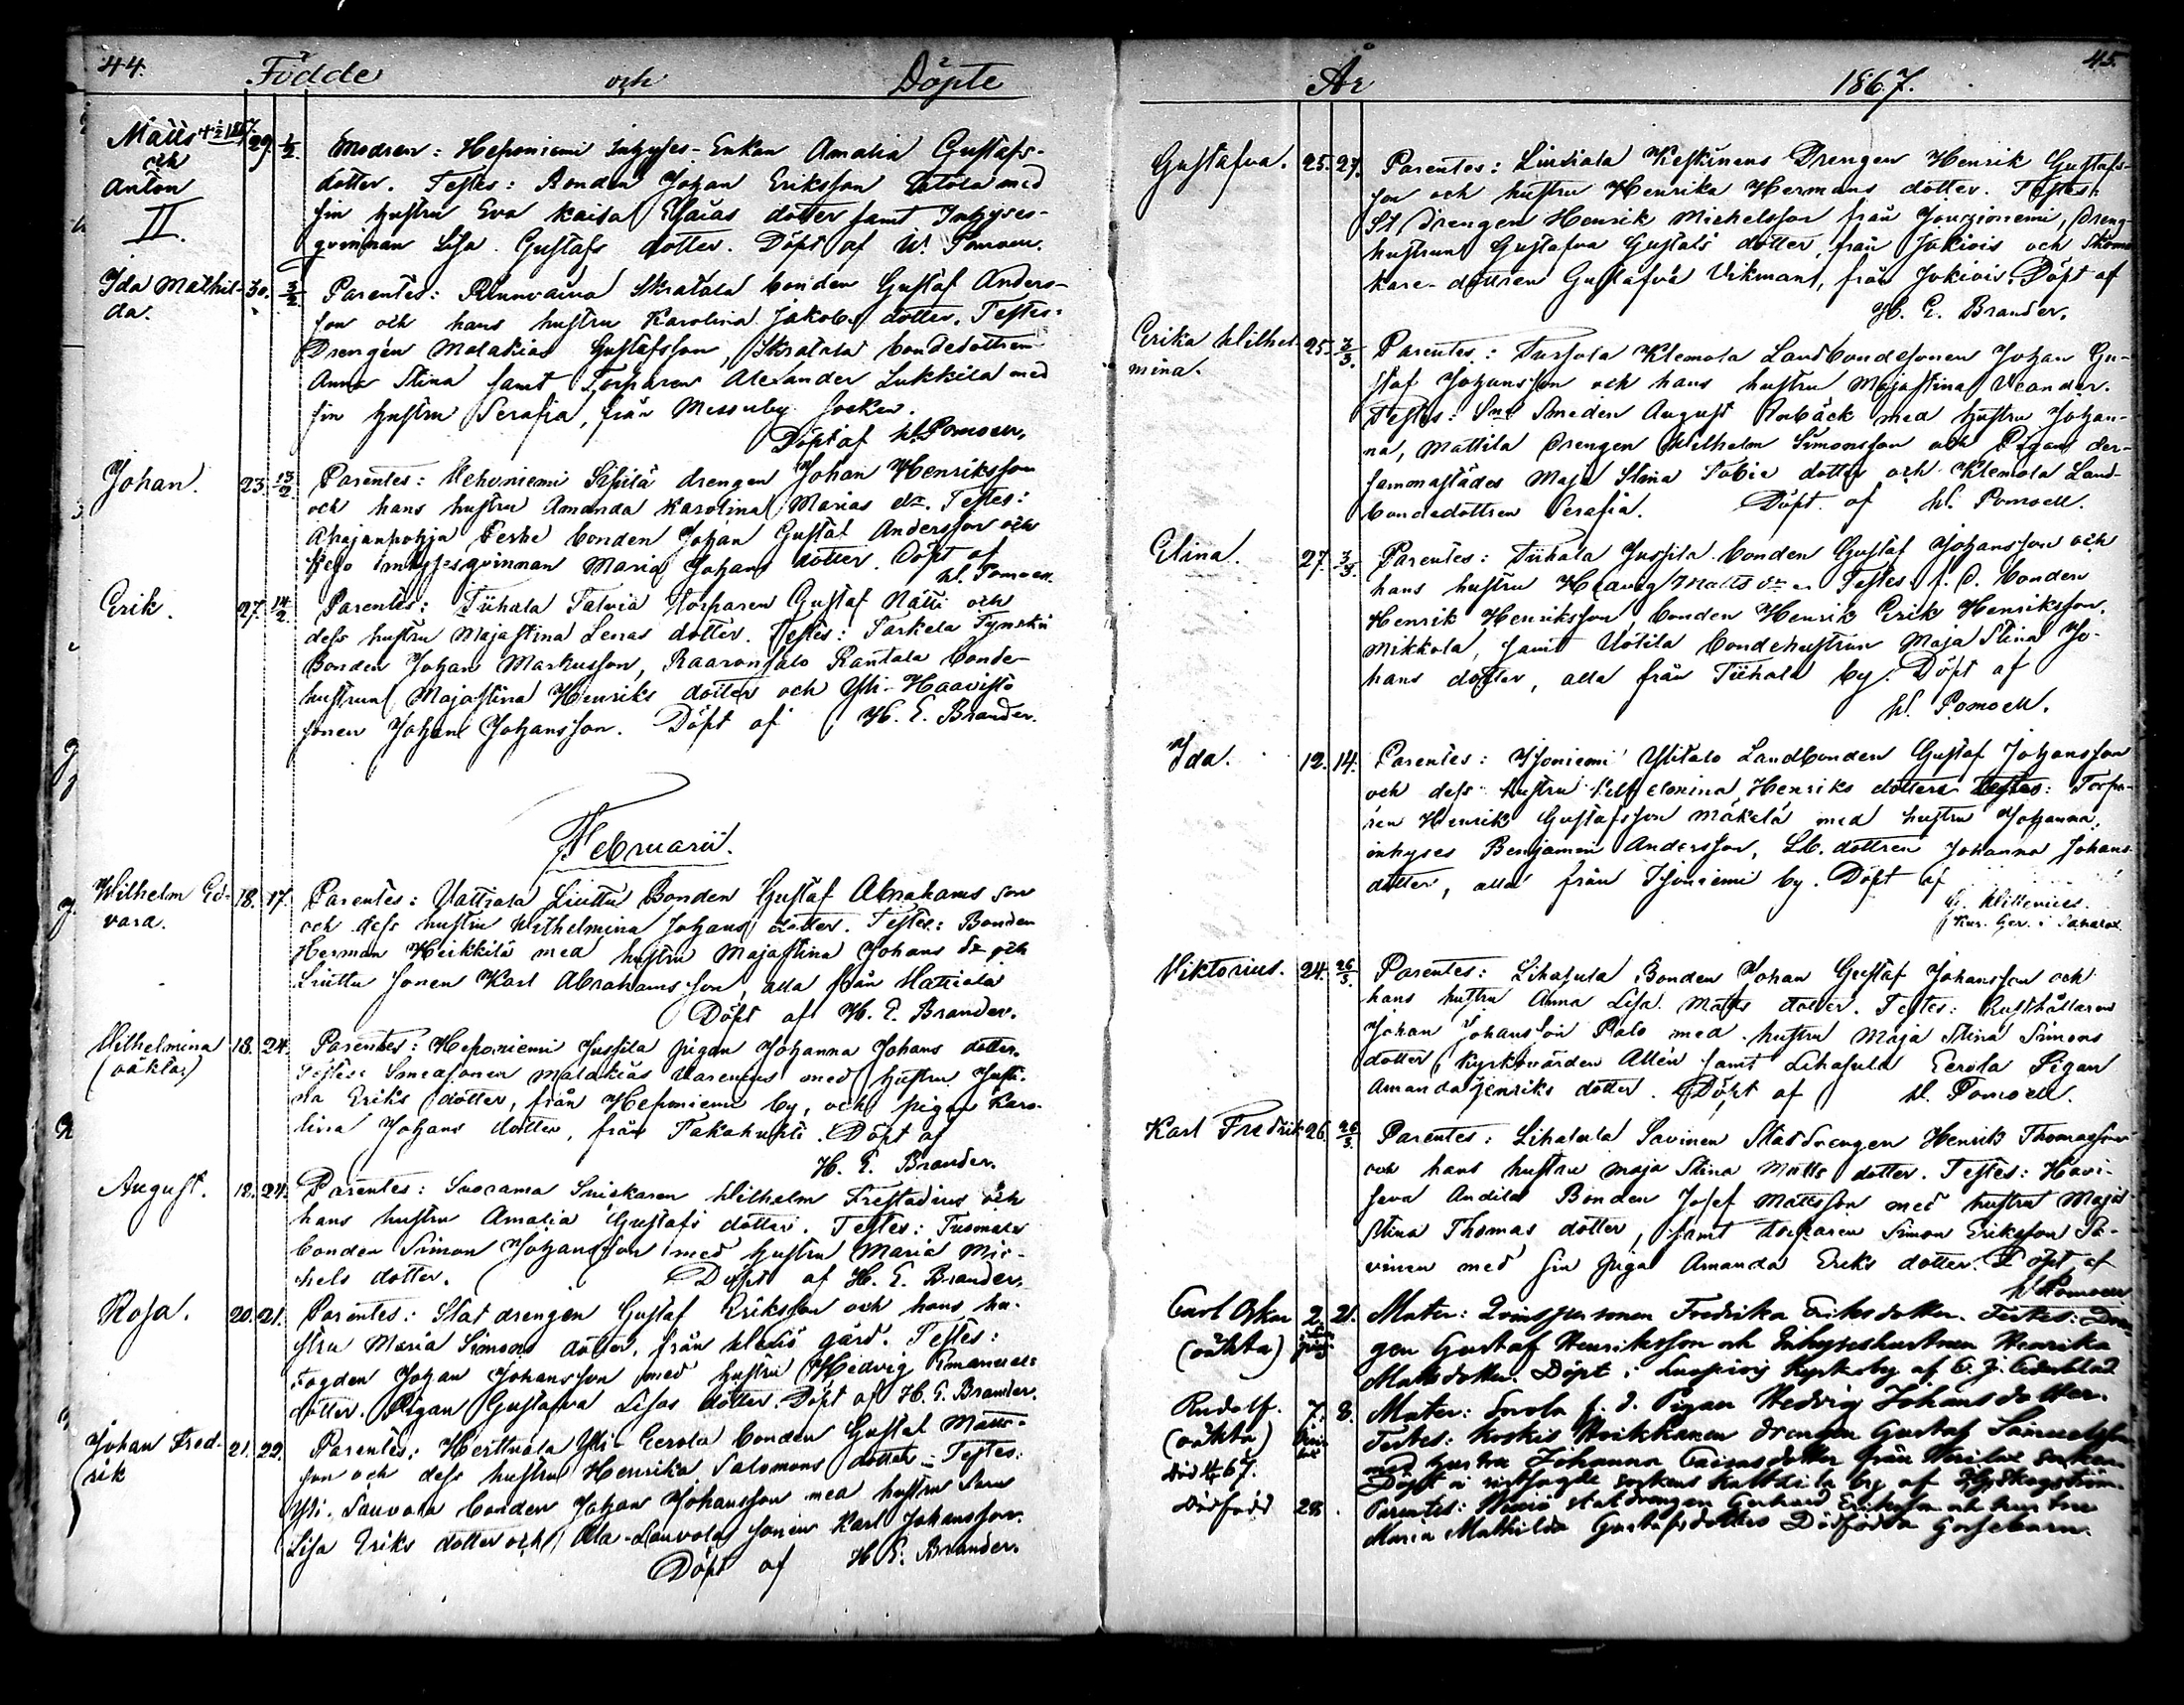 44.
Födde och Döpte
Matts + 1/2 1867.
och
Anton
II.
29. 1/2
Modren: Heponiemi Inhyses-Enkan Amalia Gustafs-
dotter. Testes: Bonden Johan Eriksson med
sin hustru Eva Kaisa Esaias dotter samt Inhyses-
qvinnan Lisa Gustafs dotter. Döpt af W. Pomoell.
Ida Mathil-
da.
30. 3/2
Parentes: Skratala bonden Gustaf Anders-
son och hans hustru Karolina Jakobs dotter. Testes:
Drengen Malakias Gustafsson, Skratala bondedottren
Anna Stina samt Torparen Alexander Lukkila med
sin hustru Serafia, från Messuby Socken.
Döpt af W. Pomoell.
Johan.
23. 13/2
Parentes: Kehoniemi Sipilä drengen Johan Henriksson
och hans hustru Amanda Karolina Marias dr. Testes:
Ahajanpohja Perhe bonden Johan Gustaf Andersson och
inhysesqvinnan Maria Johans dotter. Döpt af
W. Pomoell.
Erik.
27. 14/2
Parentes: Tiihala Talvia torparen Gustaf Nätti och
dess hustru Majastina Lenas dotter. Testes: Sarkela
Bonden Johan Markusson, Raaronsalo Rantala bonde-
hustrun Majastina Henriks dotter och Yli-Haavisto
sonen Johan Johansson. Döpt af H. E. Brander.
Februarii.
Wilhelm Ed-
vard.
18. 17.
Parentes: Vattiala Liuttu Bonden Gustaf Abrahams son
och dess hustru Wilhelmina Johans dotter. Testes: Bonden
Herman Heikkilä med hustru Majastina Johans dr och
Liuttu sonen Karl Abrahams son, alla från Vattiala
Döpt af H. E. Brander.
Wilhelmina
(oäkta)
18. 24.
Parentes: Heponiemi Jussila pigan Johanna Johans dotter.
Testes: Smedsonen Malakias Varenius med hustru Justi-
na Eriks dotter, från Heponiemi by, och pigan Karo-
lina Johans dotter, från Takahuhti. Döpt af
H. E. Brander.
August.
18. 24.
Parentes: Suorama Snickaren Wilhelm Frestadius och
hans hustru Amalia Gustafs dotter. Testes: Tuomala
bonden Simon Johansson med hustru Maria Mic-
hels dotter. Döpt af H. E. Brander.
Rosa.
20. 21.
Parentes: Stat drengen Gustaf Eriksson och hans hu-
stru Maria Simons dotter, från gård. Testes:
Fogden Johan Johansson med hustru Hedvig Emanuels
dotter. Pigan Gustafva Lisas dotter. Döpt af H. E. Brander.
Johan Fred-
rik
21. 22.
Parentes: Herttuala Yli-Eerola bonden Gustaf Matts-
son och dess hustru Henrika Salomons dotter. Testes:
Yli-Sauvola bonden Johan Johansson med hustru
Lisa Eriks dotter och Ala-Sauvola sonen Karl Johansson.
Döpt af H. E. Brander.
År 1867.
45.
Gustafva.
25. 27.
Parentes: Liuksiala Keskinens Drengen Henrik Gustafs-
son och hustru Henrika Hermans dotter. Testes:
St Drengen Henrik Michelsson från, Dreng-
hustrun Gustafva Gustafs dotter, från Jokiois och
kare-dottren Gustafva Vikman, från Jokiois. Döpt af
H. E. Brander.
Erika Wilhel-
mina.
25. 3/3.
Parentes: Tursola Klemola Landbondesonen Johan Gu-
staf Johansson och hans hustru Majastina Veander.
Testes: Smeden August med hustru Johan-
na, Mattila drengen Wilhelm Simonsson och Pigan der-
sammastädes Maja Stina dotter och Klemola Land-
bondedottren Serafia. Döpt af W. Pomoell.
Elina.
27. 3/3.
Parentes: Tiihala Jussila bonden Gustaf Johansson och
hans hustru Hedvig Matts dr. Testes: f. d. bonden
Henrik Henriksson, bonden Henrik Erik Henriksson
Mikkola, samt Uotila bondehustrun Maja Stina Jo-
hans dotter, alla från Tiihala by. Döpt af
W. Pomoell.
Ida.
12. 14.
Parentes: Isoniemi Ylitalo Landbonden Gustaf Johansson
och dess hustru Henriks dotter. Testes: Torpa-
ren Henrik Gustafsson Mäkelä med hustru Johanna,
inhyses Benjamin Andersson, Lb. dottren Johanna Johans
dotter, alla från Isoniemi by. Döpt af
Viktorius.
24. 26/3.
Parentes: Lihasula Bonden Johan Gustaf Johansson och
hans hustru Anna Lisa Matts dotter. Testes: Rusthållaren
Johan Johansson Palo med hustru Maja Stina Simons
dotter, Kyrkovärden Allén samt Lihasula Eerola Pigan
Amanda Henriks dotter. Döpt af W. Pomoell.
Karl Fredrik
26. 26/3.
Parentes: Lihasula Savinen Statdrengen Henrik Thomasson
och hans hustru Maja Stina Matts dotter. Testes: Havi-
seva Anttila Bonden Josef Mattsson med hustru Maja
Stina Thomas dotter, samt torparen Simon Eriksson Sa-
vinen med sin piga Amanda Eriks dotter. Döpt af
W. Pomoell
Carl Oskar
(oäkta)
2. 21.
Mater: Qvinspersonen Fredrika Eriksdotter. Testes: Dren-
gen Gustaf Henriksson och Inhyseshustrun Henrika
Mattsdotter. Döpt i Luopiois Kyrkoby af
Rudolf.
(oäkta)
7. 8.
Mater: f. d. Pigan Hedvig Johansdotter.
Testes: Heikkanen drengen Gustaf Samuelsson
med hustru Johanna dotter från socken.
Döpt i socken by af
Dödfödd
28.
Parentes: statdrengen Gerhard Eriksson och hustru
Maria Mathilda Gustafsdotters Dödfödda Gossebarn.